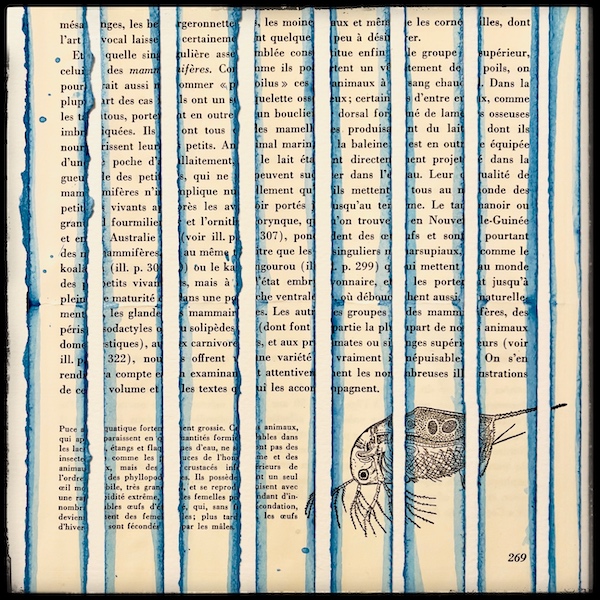 mésa nges, les be rgeronnette , les moine aux et mêm e les corne illes, dont
l'art vocal laisse certaineme nt quelque peu à dési rer.
Et quelle sin gulière asse mblée cons titue enfin le groupe supérieur,
celui des mam mifères. Co mme ils po rtent un v tement de poils, on
pour rait aussi n ommer « p ilus » ces animaux à sang chau d. Dans la
plup art des cas ils ont un s quelette oss eux; certain s d'entre e ux, comme
les ta tous, porte nt en outre un bouclie dorsal for mé de lam s osseuses
imbr iquées. Ils ont tous d es mamell s produisa nt du lait dont ils
nour rissent leur petits. An imal marin la baleine est en outre équipée
d'un poche d' allaitement, le lait éta nt directen nt projet é dans la
gueu le des peti s, qui ne peuvent su er dans l'e au. Leur qualité de
mam mifères n'i mplique nu llement qu ils mettent tous au m onde des
petit vivants a près les av oir portés jusqu'au te me. Le ta manoir ou
gran fourmilie et l'ornith orynque, q 'on trouve en Nouve lle-Guinée
et en Australie (voir ill. p 307), pon dent des œ ufs et sont pourtant
des n ammifères. au même itre que les singuliers n arsupiaux, comme le
koal (ill. p. 30 ) ou le ka ngourou (il . p. 299) q ui mettent au monde
des petits vivan s, mais à l'état embr onnaire, e les porte t jusqu'à
plein e maturité dans une po che ventrale où débou hent aussi, naturelle-
ment les glande mammaire s. Les aut es groupes des mamm fères, des
péris sodactyles o u solipèdes (dont font partie la pl upart de no animaux
dome stiques), au carnivore s, et aux pr mates ou si nges supéri urs (voir
ill. p 322), nou s offrent une variété vraiment i népuisable. On s'en
rend a compte e n examinan attentiver nent les no mbreuses ill ustrations
de ce volume et les textes q ui les accor npagnent.
Puce a quatique forten ent grossie. Ce s animaux,
qui ap paraissent en q uantités formi ables dans
les lacs, étangs et flaq ues d'eau, ne s ont pas des
insecte comme les puces de l'hom me et des
animau x, mais des crustacés inf érieurs de
l'ordre des phyllopod es. Ils possède nt un seul
œil mo bile, très gran , et se reprod isent avec
une ra pidité extrême, les femelles po ndant d'in-
nombr ables œufs d'é é, qui, sans f condation,
devien nent des feme lles; plus tar , les œufs
d'hiver sont fécondés par les mâles.
269